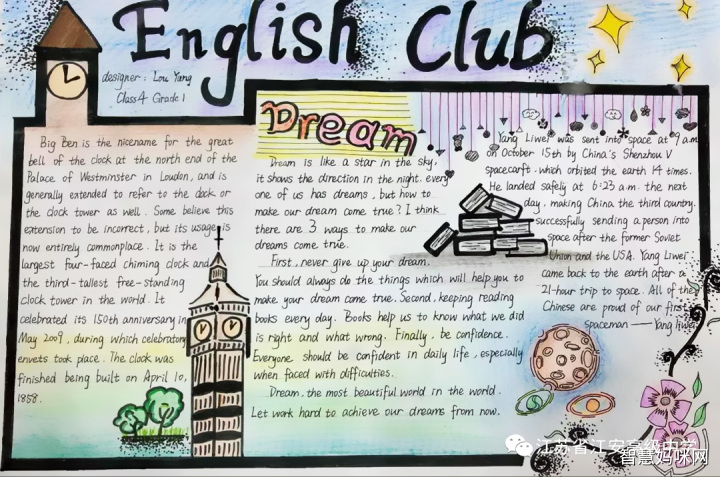 English Club
designer: Lou Yang
Class4 Grade 1
Big Ben is the nicename for the great
bell of the clock at the north end of the
Palace of Westminster in Loudon, and is
generally extended to refer to the clock or
the clock tower as well. Some believe this
extension to be incorrect, but its usage is
now entirely commonplace. It is the
largest four-faced chiming clock and
the third-tallest free-standing
clock tower in the world. It
celebrated its 150th anniversary in
May 2009, during which celebratory
envets took place. The clock was
finished being built on April 10,
1858.
Dream
Dream is like a star in the sky,
it shows the direction in the night. every
one of us has dreams, but how to
make our dream come true? I think
there are 3 ways to make our
dreams come true.
First, never give up your dream.
You should always do the things which will help you to
make your dream come true. Second, keeping reading
books every day. Books help us to know what we did
is right and what wrong. Finally, be confidence.
Everyone should be confident in daily life, especially
when faced with difficulties.
Dream, the most beautiful world in the world.
Let work hard to achieve our dreams from now.
Yang Liwei was sent into space at 9 a.m
on October 15th by China's Shenzhou V
spacecarft, which orbited the earth 14 times.
He landed safely at 6:23 a.m. the next
day, making China the third country
successfully sending a person into
space after the former Soviet
Union and the USA. Yang Liwei
came back to the earth after a
21-hour trip to space. All of the
Chinese are proud of our first
spaceman — Yang liwei
江苏省江安高级中学
智慧妈咪网